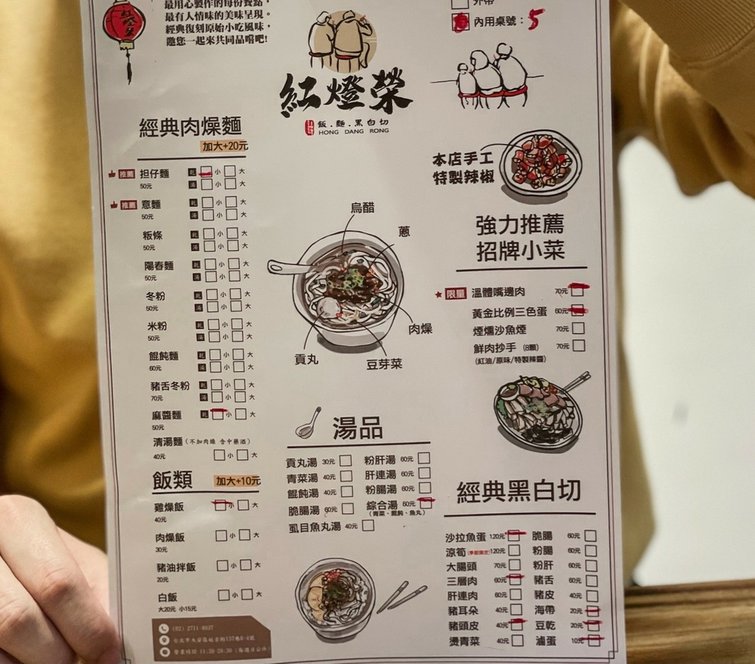 最用心製作的每份餐點，
最有人情味的美味呈現。
經典復刻原始小吃風味，
邀您一起來共同品嚐吧!
紅燈榮
外帶
內用桌號：5
紅燈榮
飯．麵．黑白切
HONG DANG RONG
經典肉燥麵
加大+20元
推薦 担仔麵 乾 小 大
50元 湯
推薦 意麵 乾 小 大
50元 湯
粄條 乾 小 大
50元 湯
陽春麵 乾 小 大
50元 湯
冬粉 乾 小 大
50元 湯
米粉 乾 小 大
50元 湯
餛飩麵 乾 小 大
60元 湯
豬舌冬粉 乾 小 大
70元 湯
麻醬麵 乾 小 大
50元
清湯麵 (不加肉燥 含中藥酒)
40元 小 大
飯類 加大+10元
雞燥飯 小 大
40元
肉燥飯 小 大
30元
豬油拌飯 小 大
20元
白飯
大20元 小15元
(02) 2711-8037
烏醋
蔥
肉燥
豆芽菜
貢丸
湯品
貢丸湯 30元
青菜湯 40元
餛飩湯 40元
脆腸湯 60元
虱目魚丸湯 40元
粉肝湯 60元
肝連湯 60元
粉腸湯 60元
綜合湯 60元
(青菜、餛飩、魚丸)
本店手工
特製辣椒
強力推薦
招牌小菜
限量 溫體嘴邊肉 70元
黃金比例三色蛋 60元
煙燻沙魚煙 70元
鮮肉抄手 (8顆) 70元
(紅油/原味/特製辣醬)
經典黑白切
沙拉魚蛋 120元
涼筍 120元
大腸頭 70元
三層肉 60元
肝連肉 60元
豬耳朵 40元
豬頭皮 40元
燙青菜 40元
脆腸 60元
粉腸 60元
粉肝 60元
豬舌 60元
豬皮 40元
海帶 20元
豆乾 20元
滷蛋 10元